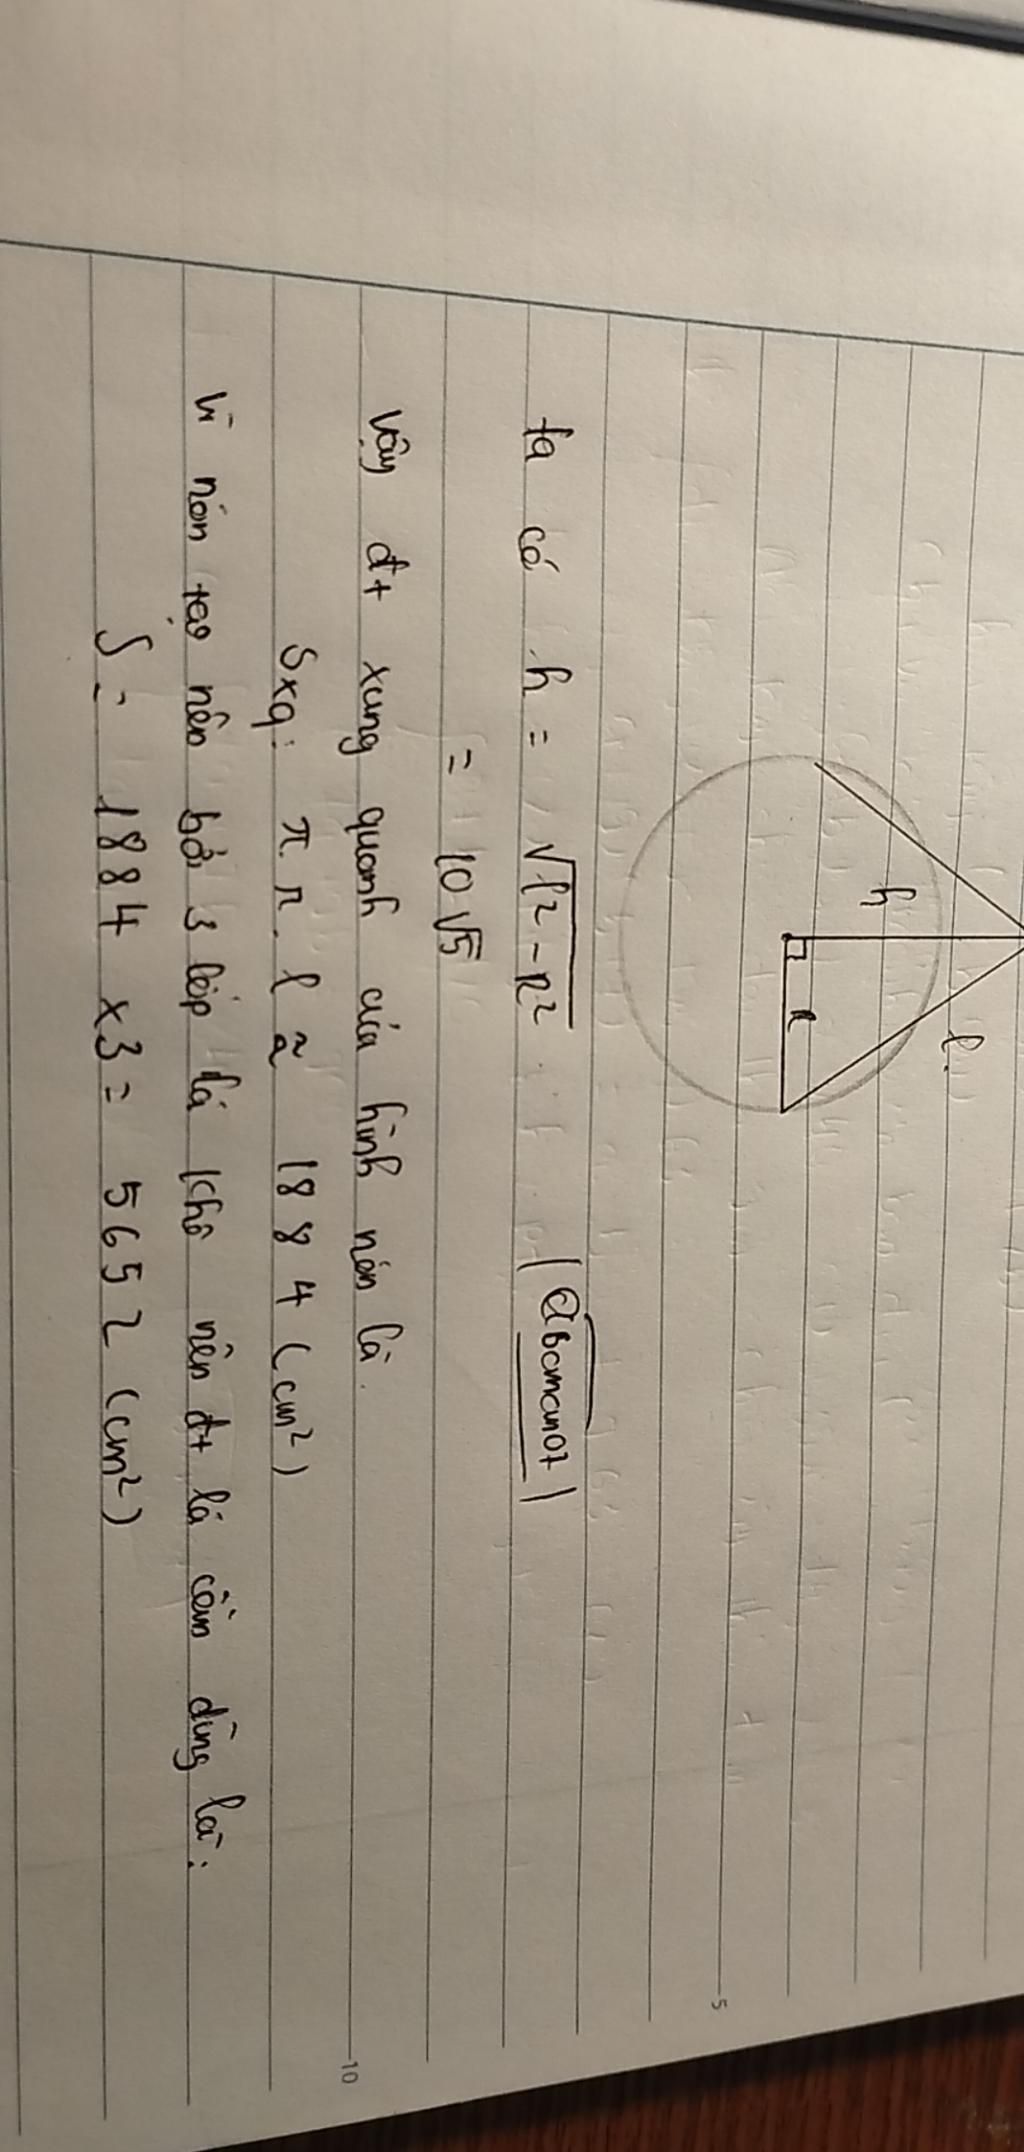 h
l
R
ta có h = √l² - R² (abamanot)
= 10√5
vậy dt xung quanh của hình nón là.
Sxq: π. r. l ≈ 1884 (cm²)
Vì nón tạo nên bởi 3 lớp lá khô nên dt lá cần dùng là:
S = 1884 x3 = 5652 (cm²)
5
10